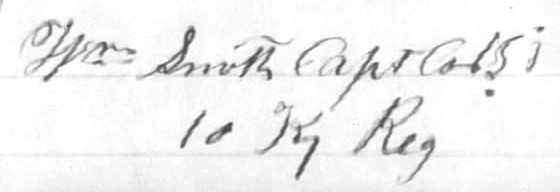 Wm Smith Capt Co
10 Ky Reg